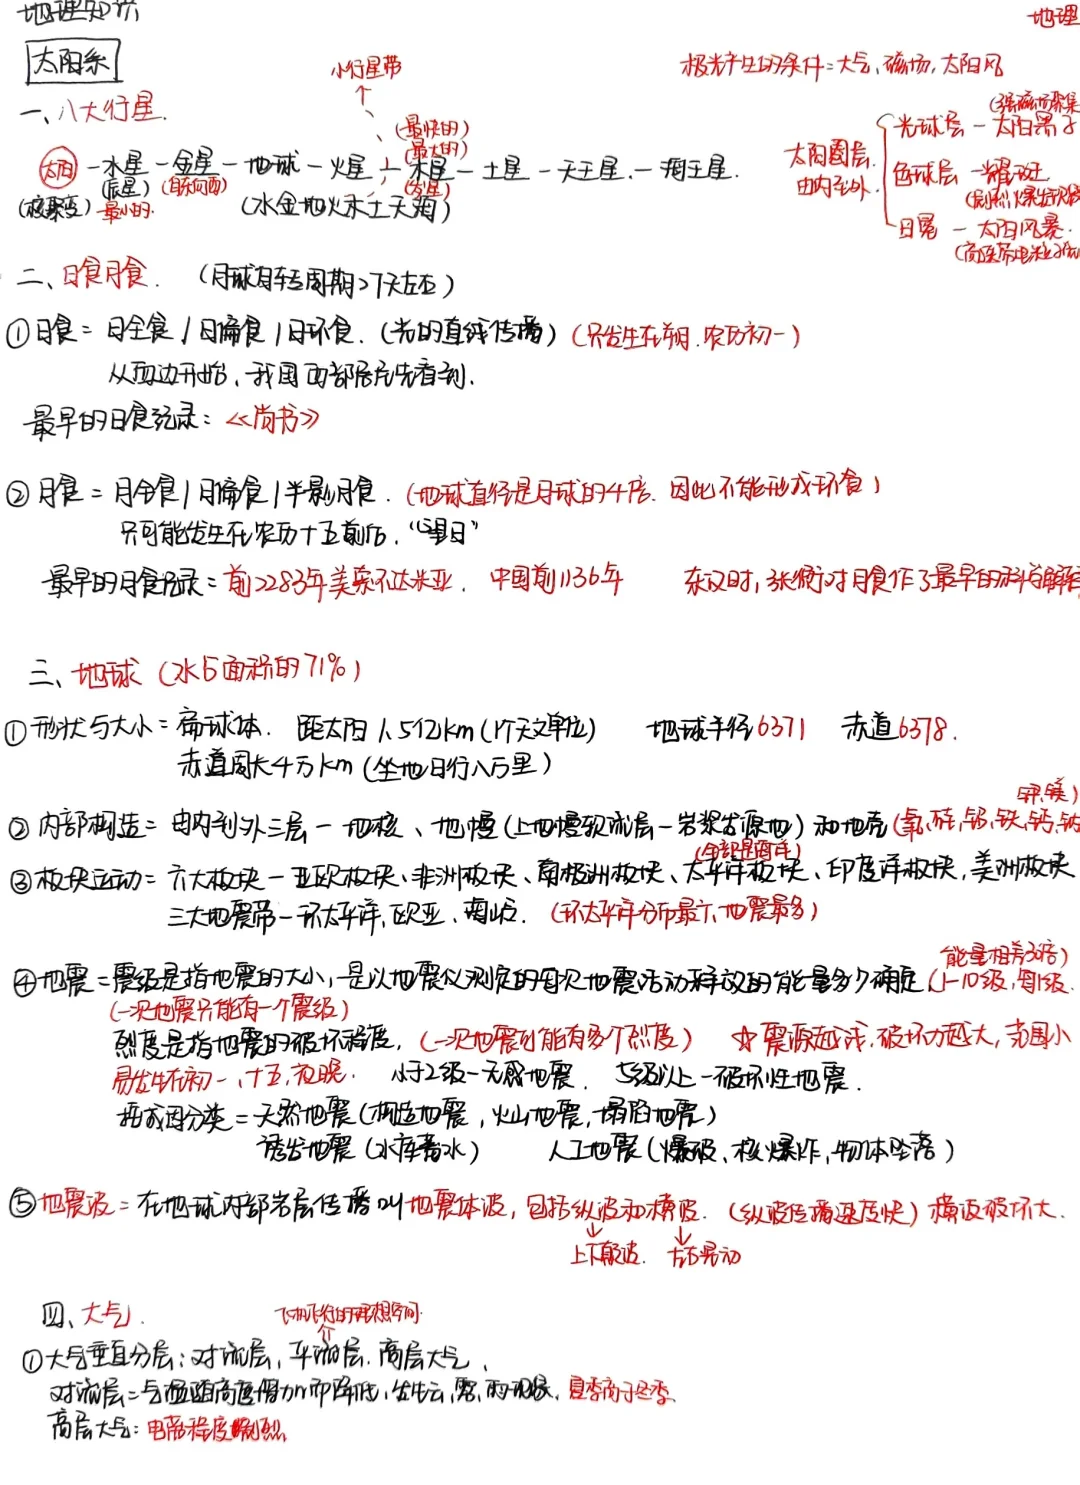 地理知识
地理
太阳系
小行星带
极光产生的条件=大气、磁场,太阳风
一、八大行星.
(最快的)
(最大的)
太阳-水星-金星-地球-火星-木星-土星-天王星.-海王星.
(辰星) (自东向西) (岁星)
(核聚变) 最小的. (水金地火木土天海)
太阳圈层.由内至外.
光球层-太阳黑子 (强磁场聚集
色球层-耀斑 (剧烈爆发现象
日冕-太阳风暴. (高速带电粒子流
二、日食月食. (月球自转周期27天左右)
①日食=日全食/日偏食/日环食.(光的直线传播)(只发生在朔.农历初一)
从西边开始、我国西部居民先看到.
最早的日食纪录:《尚书》
②月食=月全食/月偏食/半影月食.(地球直径是月球的4倍.因此不能形成环食)
只可能发生在农历十五前后."望日"
最早的月食记录=前2283年美索不达米亚. 中国前1136年 东汉时,张衡对月食作了最早的科学解释
三、地球(水占面积的71%)
①形状与大小=扁球体. 距太阳1.5亿km(1个天文单位) 地球半径6371 赤道6378.
赤道周长4万km(坐地日行八万里)
②内部构造=由内到外三层-地核、地幔(上地幔软流层-岩浆发源地)和地壳(氧,硅,铝,铁,钙,钠
钾.镁)
(全部是海洋)
③板块运动=六大板块-亚欧板块、非洲板块、南极洲板块、太平洋板块、印度洋板块,美洲板块
三大地震带-环太平洋,欧亚、海岭. (环太平洋分布最广,地震最多)
能量相差30倍)
④地震=震级是指地震的大小,是以地震仪测定的每次地震活动释放的能量多少确定.(1-10级,每1级.
(一次地震只能有一个震级)
烈度是指地震的破坏程度,(一次地震可能有多个烈度) ☆震源越浅.破坏力越大,范围小
易发生在初一、十五,夜晚. 小于2级-无感地震. 5级以上-破坏性地震.
按成因分类=天然地震(构造地震,火山地震,塌陷地震)
诱发地震(水库蓄水) 人工地震(爆破、核爆炸,物体坠落)
⑤地震波=在地球内部岩层传播叫地震体波,包括纵波和横波.(纵波传播速度快)横波破坏大.
↓ ↓
上下颠波. 左右晃动
四、大气.
飞机飞行的理想空间.
↑
①大气垂直分层:对流层,平流层.高层大气、
对流层=气温随高度增加而降低,发生云,雾,雨现象、夏季高于冬季.
高层大气:电离程度强烈